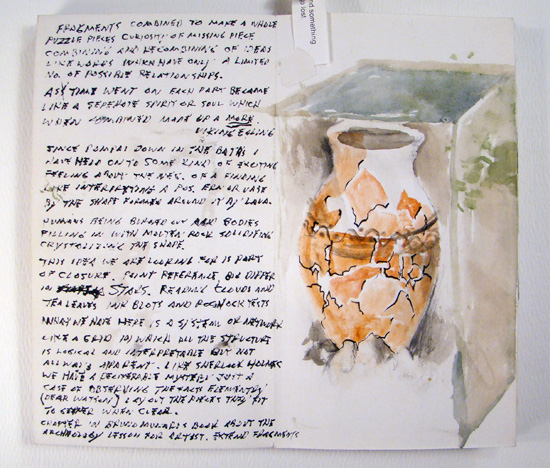 nd something
lost
FRAGMENTS COMBINED TO MAKE A WHOLE
PUZZLE PIECES CURIOSITY OF MISSING PIECE
COMBINING AND RECOMBINING OF IDEAS
LIKE WORDS WHICH HAVE ONLY A LIMITED
NO. OF POSSIBLE RELATIONSHIPS.
AS TIME WENT ON EACH PART BECAME
LIKE A SEPERATE SPIRIT OR SOUL WHICH
WHEN COMBINED MADE UP A MORE.
VIKING EGLING
SINCE POMPAI DOWN IN THE BATHS I
HAVE HELD ONTO SOME KIND OF EXCITING
FEELING ABOUT THE NEG. OF A FINDING
LIKE INTERPRETING A POS. ERA OR VASE
BY THE SHAPE FORMED AROUND IT BY LAVA.
HUMANS BEING BURNED OUT BODIES
FILLING IN WITH MOLTEN ROCK SOLIDIFING
CRYSTOLIZING THE SHAPE.
THIS IDEA WE ARE LOOKING FOR IS PART
OF CLOSURE. POINT REFERANCE, BIG DIPPER
IN STARS. READING CLOUDS AND
TEA LEAVES INK BLOTS AND TESTS
WHAT WE HAVE HERE IS A SYSTEM OR NETWORK
LIKE A GRID IN WHICH ALL THE STRUCTURE
IS LOGICAL AND INTERPRETABLE BUT NOT
ALLWAYS APPARENT. LIKE SHERLOCK HOLMES
WE HAVE A DECIPHERABLE MYSTERY JUST A
CASE OF OBSERVING THE FACTS ELEMENTRY
(DEAR WATSON) LAY OUT THE PIECES THEY FIT
TO GETHER WHEN CLEAR.
CHAPTER IN BRUNO MUNARIS BOOK ABOUT THE
ARCHAEOLOGY LESSON FOR ARTIST. EXTEND FRAGMENTS